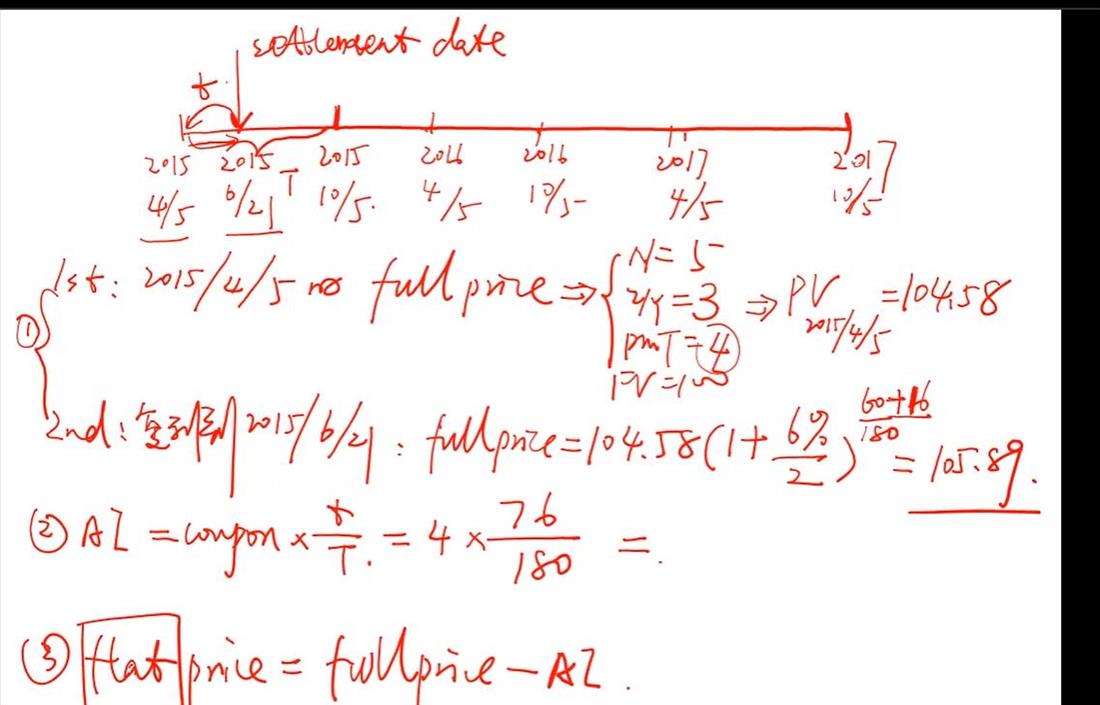 settlement date
t
2015 2015 T 2015 2016 2016 2017 2017
4/5 6/21 10/5. 4/5 10/5 4/5 10/5
① 1st: 2015/4/5 full price ⇒ { N = 5
I/Y = 3 ⇒ PV 2015/4/5 = 104.58
PMT = 4
FV = 100
2nd: 复利到 2015/6/21 : full price = 104.58 (1 + 6%/2)^(60+16/180) = 105.89.
② AI = coupon × t/T. = 4 × 76/180 =.
③ flat price = full price − AI.